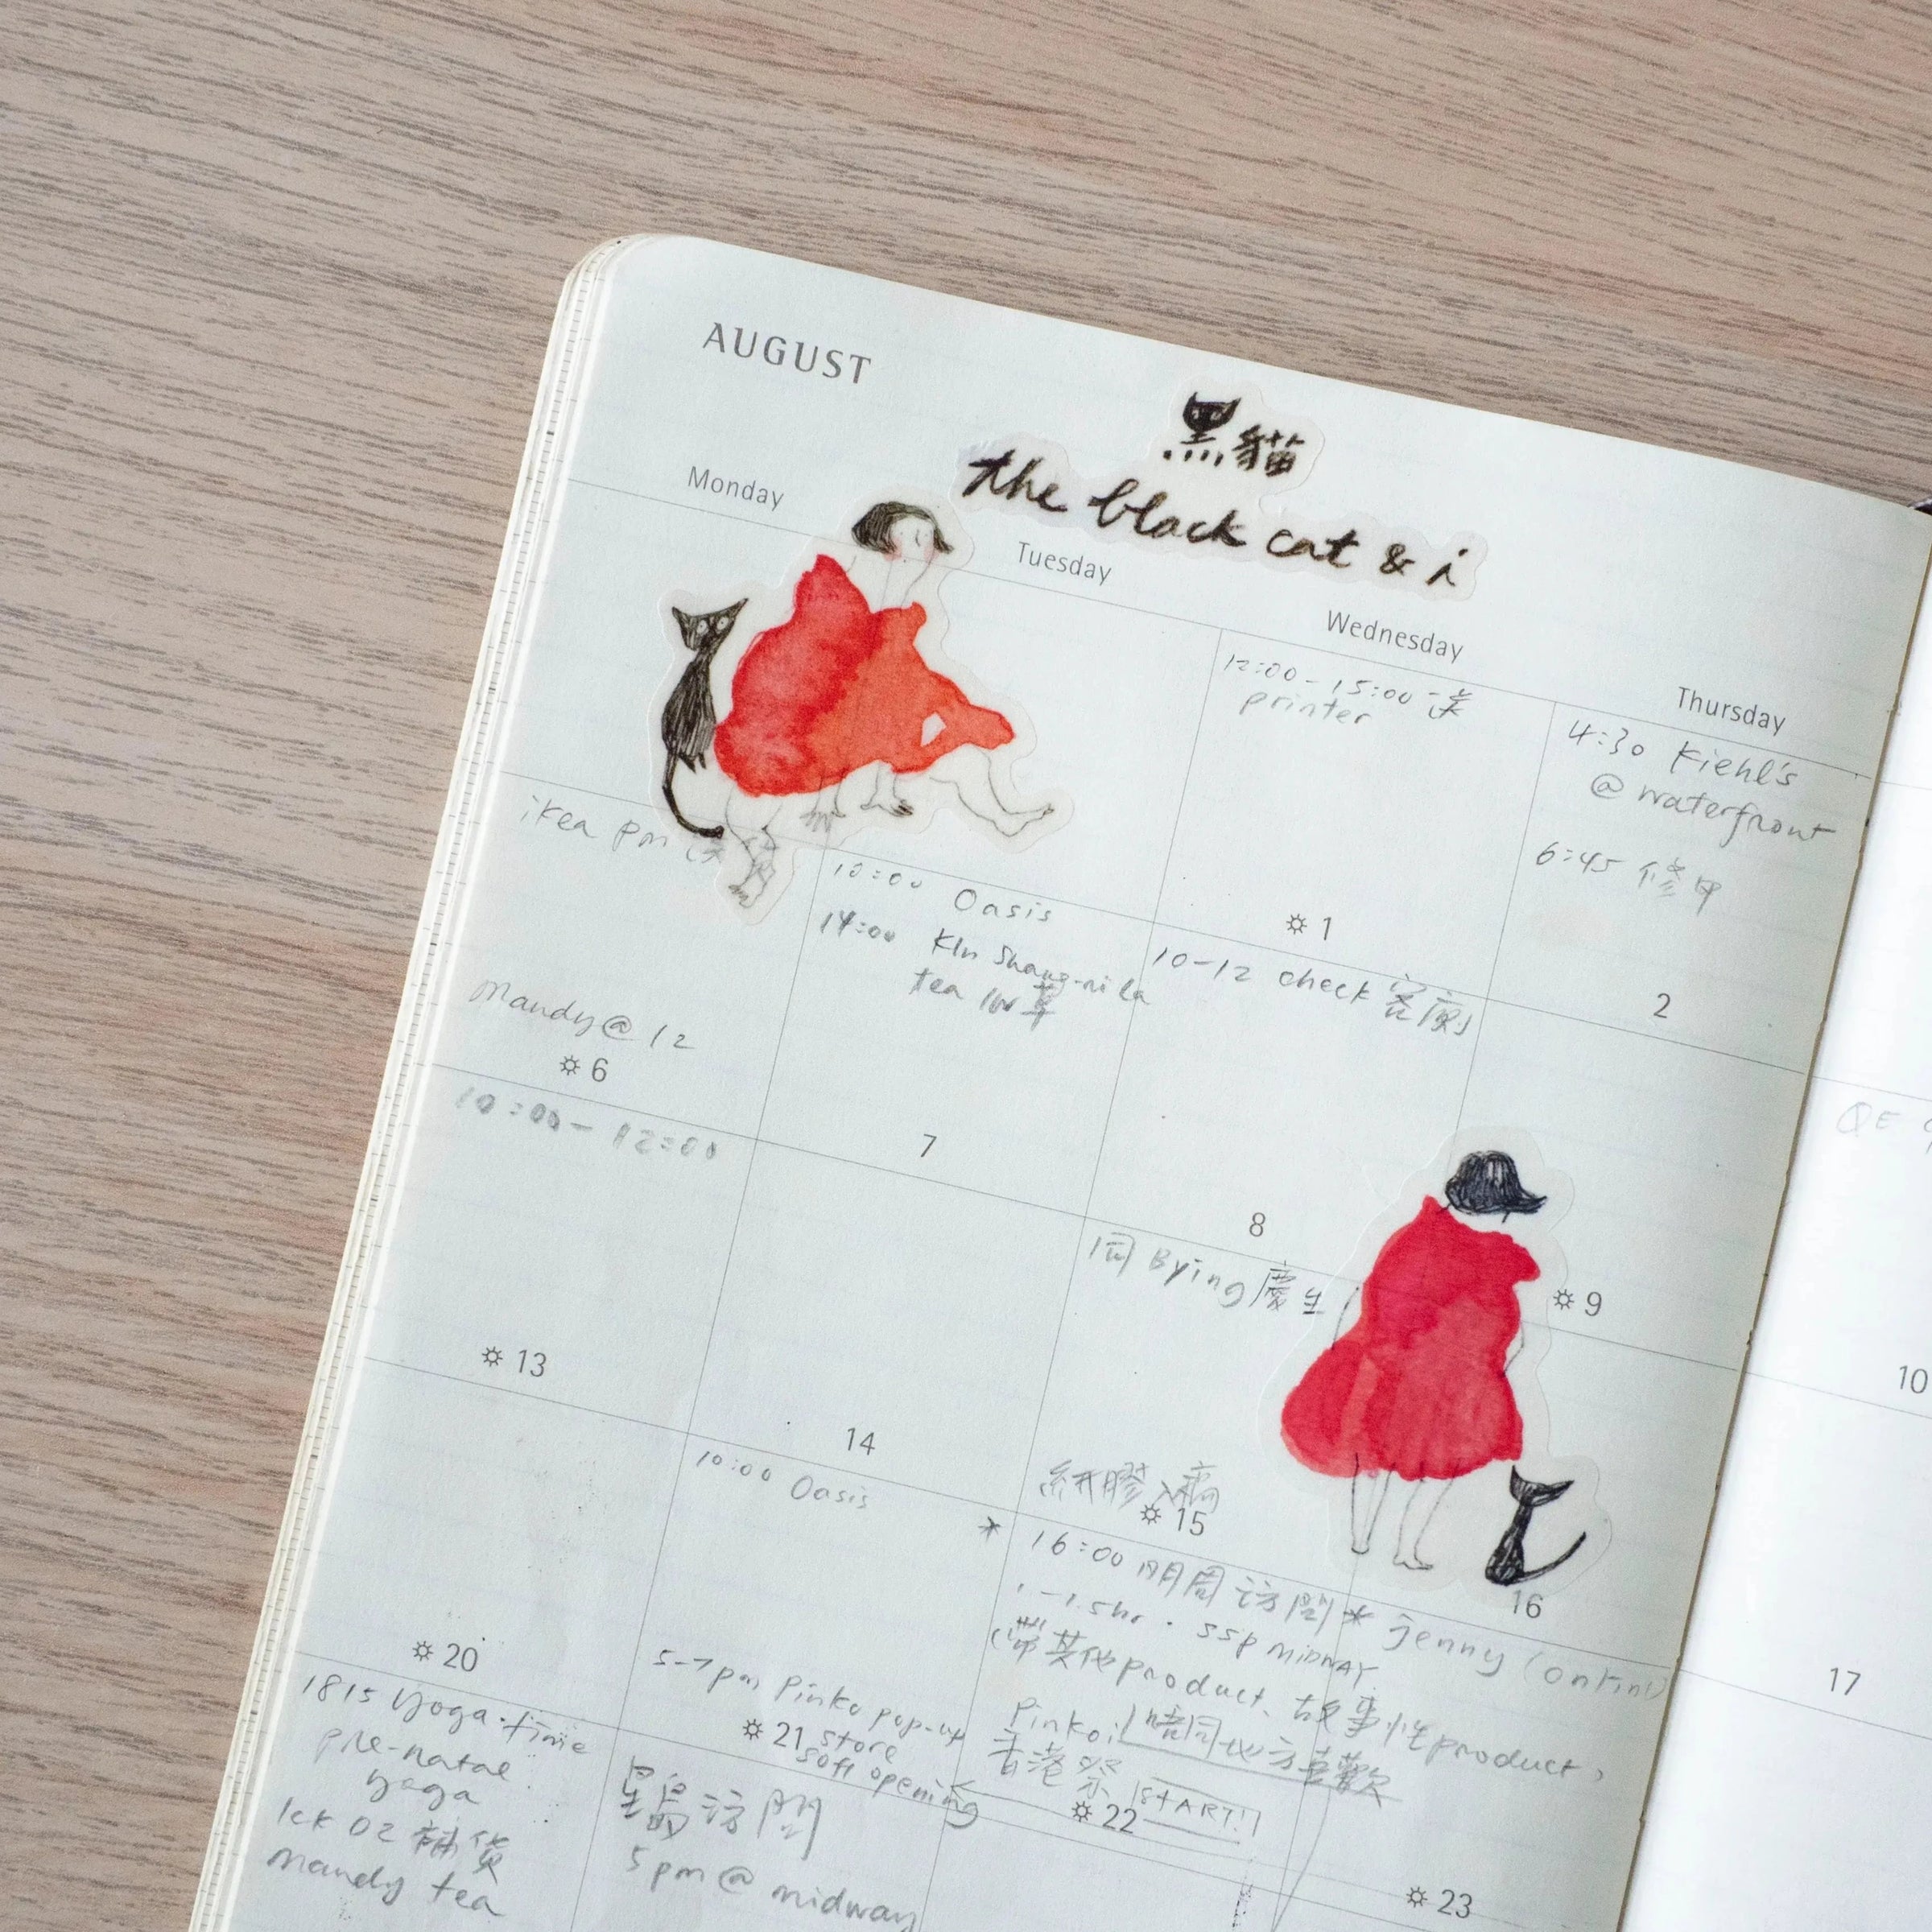 AUGUST
黑貓
the black cat & i
Monday
Tuesday
Wednesday
Thursday
12:00-15:00 送
printer
1
4:30 Kiehl's
@ waterfront
6:45 修甲
2
ikea pm 送
Mandy @ 12
6
10:00 Oasis
14:00 Kln Shang-ri la
tea
7
10-12 check
8
9
QE
10
10:00-12:00
13
14
同 Bying 慶生
15
16
17
20
10:00 Oasis
5-7pm Pinkoi pop-up
store
soft opening
21
16:00 明周訪問
1-1.5hr. SSP MIDWAY
(帶其他product、故事性product,
Pinkoi 唔同地方喜歡
香港祭 START!!
22
* Jenny (
23
1815 Yoga-time
pre-natal
yoga
lck 02 補貨
Mandy tea
訪問
5pm @ midway